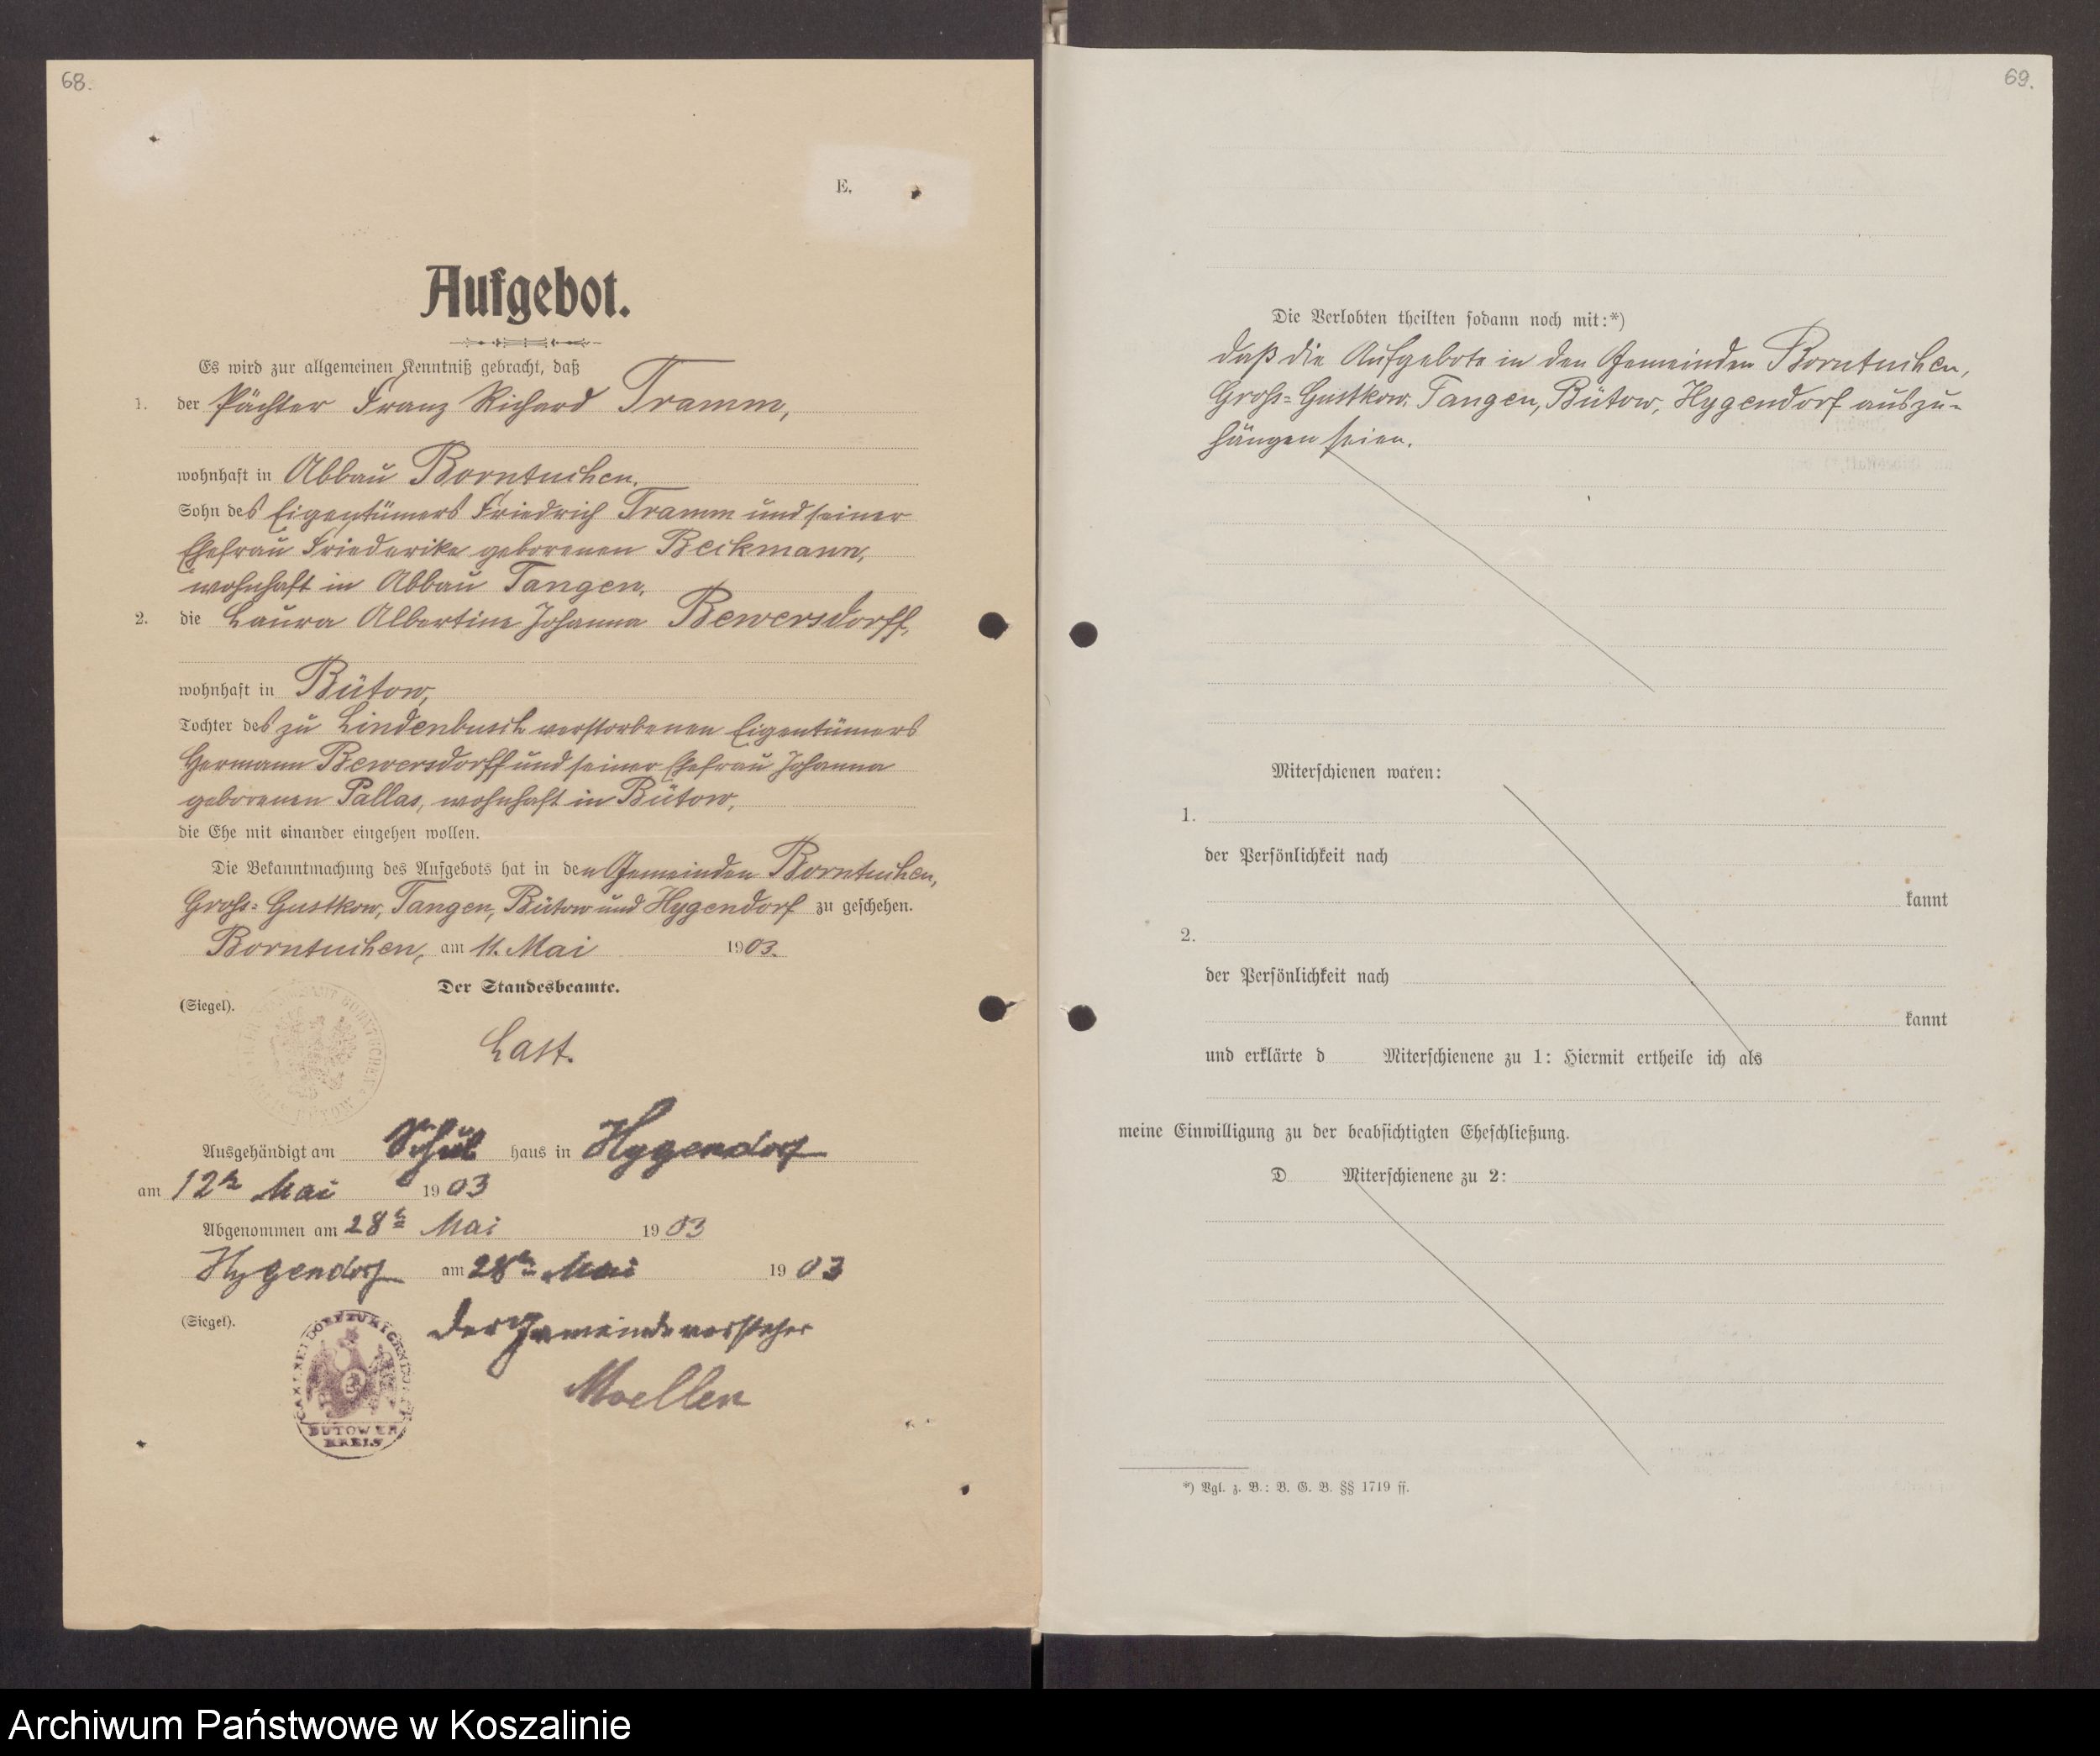 68.
E.
Aufgebot.
Es wird zur allgemeinen Kenntniß gebracht, daß
1. der Pächter Franz Richard Tramm,
wohnhaft in Abbau Borntuchen.
Sohn des Eigentümers Friedrich Tramm und seiner
Ehefrau Friederike geborenen Beckmann,
wohnhaft in Abbau Tangen.
2. die Laura Albertine Johanna Bewersdorff,
wohnhaft in Bütow,
Tochter des zu Lindenbusch verstorbenen Eigentümers
Hermann Bewersdorff und seiner Ehefrau Johanna
geborenen Pallas, wohnhaft in Bütow,
die Ehe mit einander eingehen wollen.
Die Bekanntmachung des Aufgebots hat in den Gemeinden Borntuchen,
Gross-Gustkow, Tangen, Bütow und Hygendorf zu geschehen.
Borntuchen, am 11. Mai 1903.
Der Standesbeamte.
(Siegel).
Last.
Ausgehändigt am Schul haus in Hygendorf
am 12ten Mai 1903
Abgenommen am 28ten Mai 1903
Hygendorf am 28ten Mai 1903
(Siegel).
Der Gemeindevorsteher
Moeller
BÜTOWER
KREIS
69.
Die Verlobten theilten sodann noch mit:*)
daß die Aufgebote in den Gemeinden Borntuchen,
Gross-Gustkow, Tangen, Bütow, Hygendorf auszu-
hängen seien.
Miterschienen waren:
1.
der Persönlichkeit nach
kannt
2.
der Persönlichkeit nach
kannt
und erklärte d Miterschienene zu 1: Hiermit ertheile ich als
meine Einwilligung zu der beabsichtigten Eheschließung.
D Miterschienene zu 2:
*) Vgl. z. B.: B. G. B. §§ 1719 ff.
Archiwum Państwowe w Koszalinie